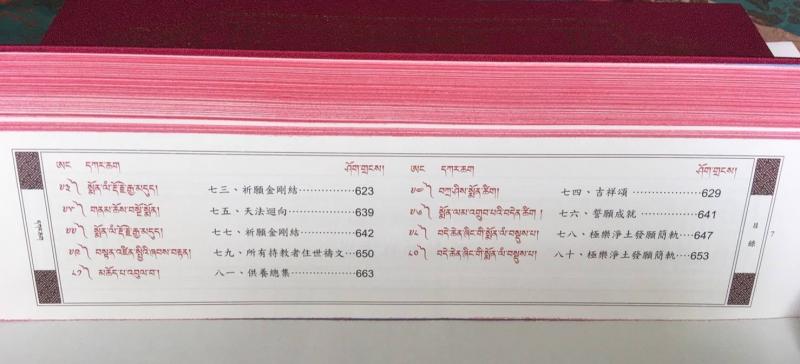 ཨང དཀར་ཆག ཤོག་གྲངས། ཨང དཀར་ཆག ཤོག་གྲངས།
༧༣༽ སྨོན་ལཾ་རྡོ་རྗེ་རྒྱ་མདུད། 七三、祈願金剛結……………623 ༧༤༽ བཀྲ་ཤིས་སྨོན་ཚིག། 七四、吉祥頌 ………………629
༧༥༽ གནམ་ཆོས་བསྔོ་སྨོན། 七五、天法迴向………………639 ༧༦༽ སྨོན་ལམ་འགྲུབ་པའི་བདེན་ཚིག། 七六、誓願成就 ……………641
༧༧༽ སྨོན་ལཾ་རྡོ་རྗེ་རྒྱ་མདུད། 七七、祈願金剛結……………642 ༧༨༽ བདེ་ཆེན་ཞིང་གི་སྨོན་ལཾ་བསྡུས་པ། 七八、極樂淨土發願簡軌…647
༧༩༽ བསྟན་འཛིན་སྤྱིའི་ཞབས་བརྟན། 七九、所有持教者住世禱文…650 ༨༠༽ བདེ་ཆེན་ཞིང་གི་སྨོན་ལཾ་བསྡུས་པ། 八十、極樂淨土發願簡軌…653
༨༡༽ མཆོད་པ་འབུལ་བ། 八一、供養總集………………663
དཀར་ཆག
目錄
7